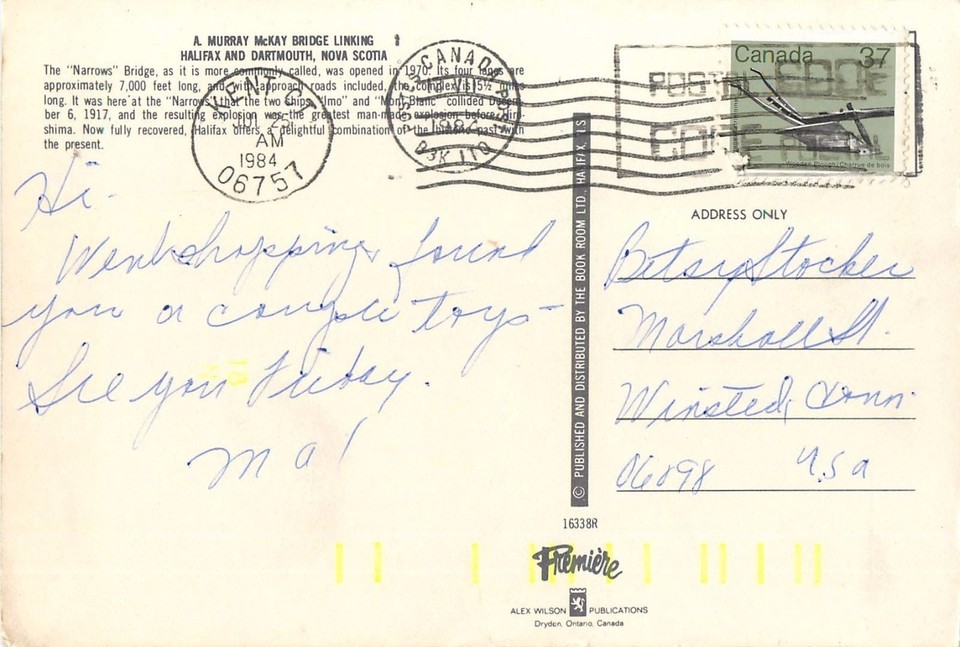 A. MURRAY McKAY BRIDGE LINKING
HALIFAX AND DARTMOUTH, NOVA SCOTIA
The "Narrows" Bridge, as it is more commonly called, was opened in 1970. Its four lanes are
approximately 7,000 feet long, and with approach roads included, the complex is 5½ miles
long. It was here at the "Narrows" that the two ships "Imo" and "Mont Blanc" collided Decem-
ber 6, 1917, and the resulting explosion was the greatest man-made explosion before Hiro-
shima. Now fully recovered, Halifax offers a delightful combination of the historic past with
the present.
KENT CT
AM
1984
06757
CANADA POST
1984
B3K 1T0
Canada 37
Wooden Plough / Charrue de bois
POSTAL CODE
CODE POSTAL
Hi.
Went shopping, found
you a couple toys -
See you Friday.
Ma!
ADDRESS ONLY
Betsy Stocker
Marshall St.
Winsted, Conn.
06098 USA
© PUBLISHED AND DISTRIBUTED BY THE BOOK ROOM LTD., HALIFAX, N.S.
16338R
Première
ALEX WILSON PUBLICATIONS
Dryden, Ontario, Canada